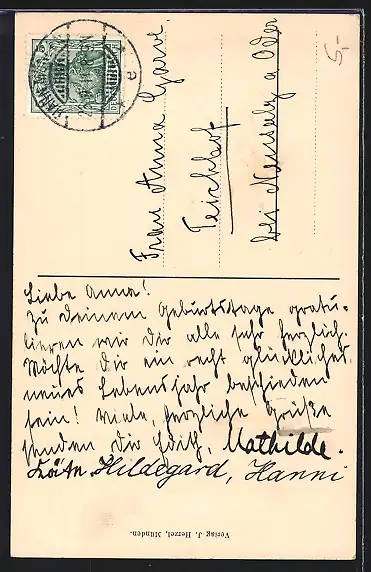 5.-
Frau Anna Garve.
Teichhof
bei Neusalz a Oder
Liebe Anna!
Zu Deinem Geburtstage gratu-
lieren wir Dir alle sehr herzlich.
Möchte Dir ein recht glückliches
neues Lebensjahr beschieden
sein! Viele, herzliche Grüße
senden Dir Edith, Mathilde.
Käte, Hildegard, Hanni
Verlag J. Herzel, Münden.